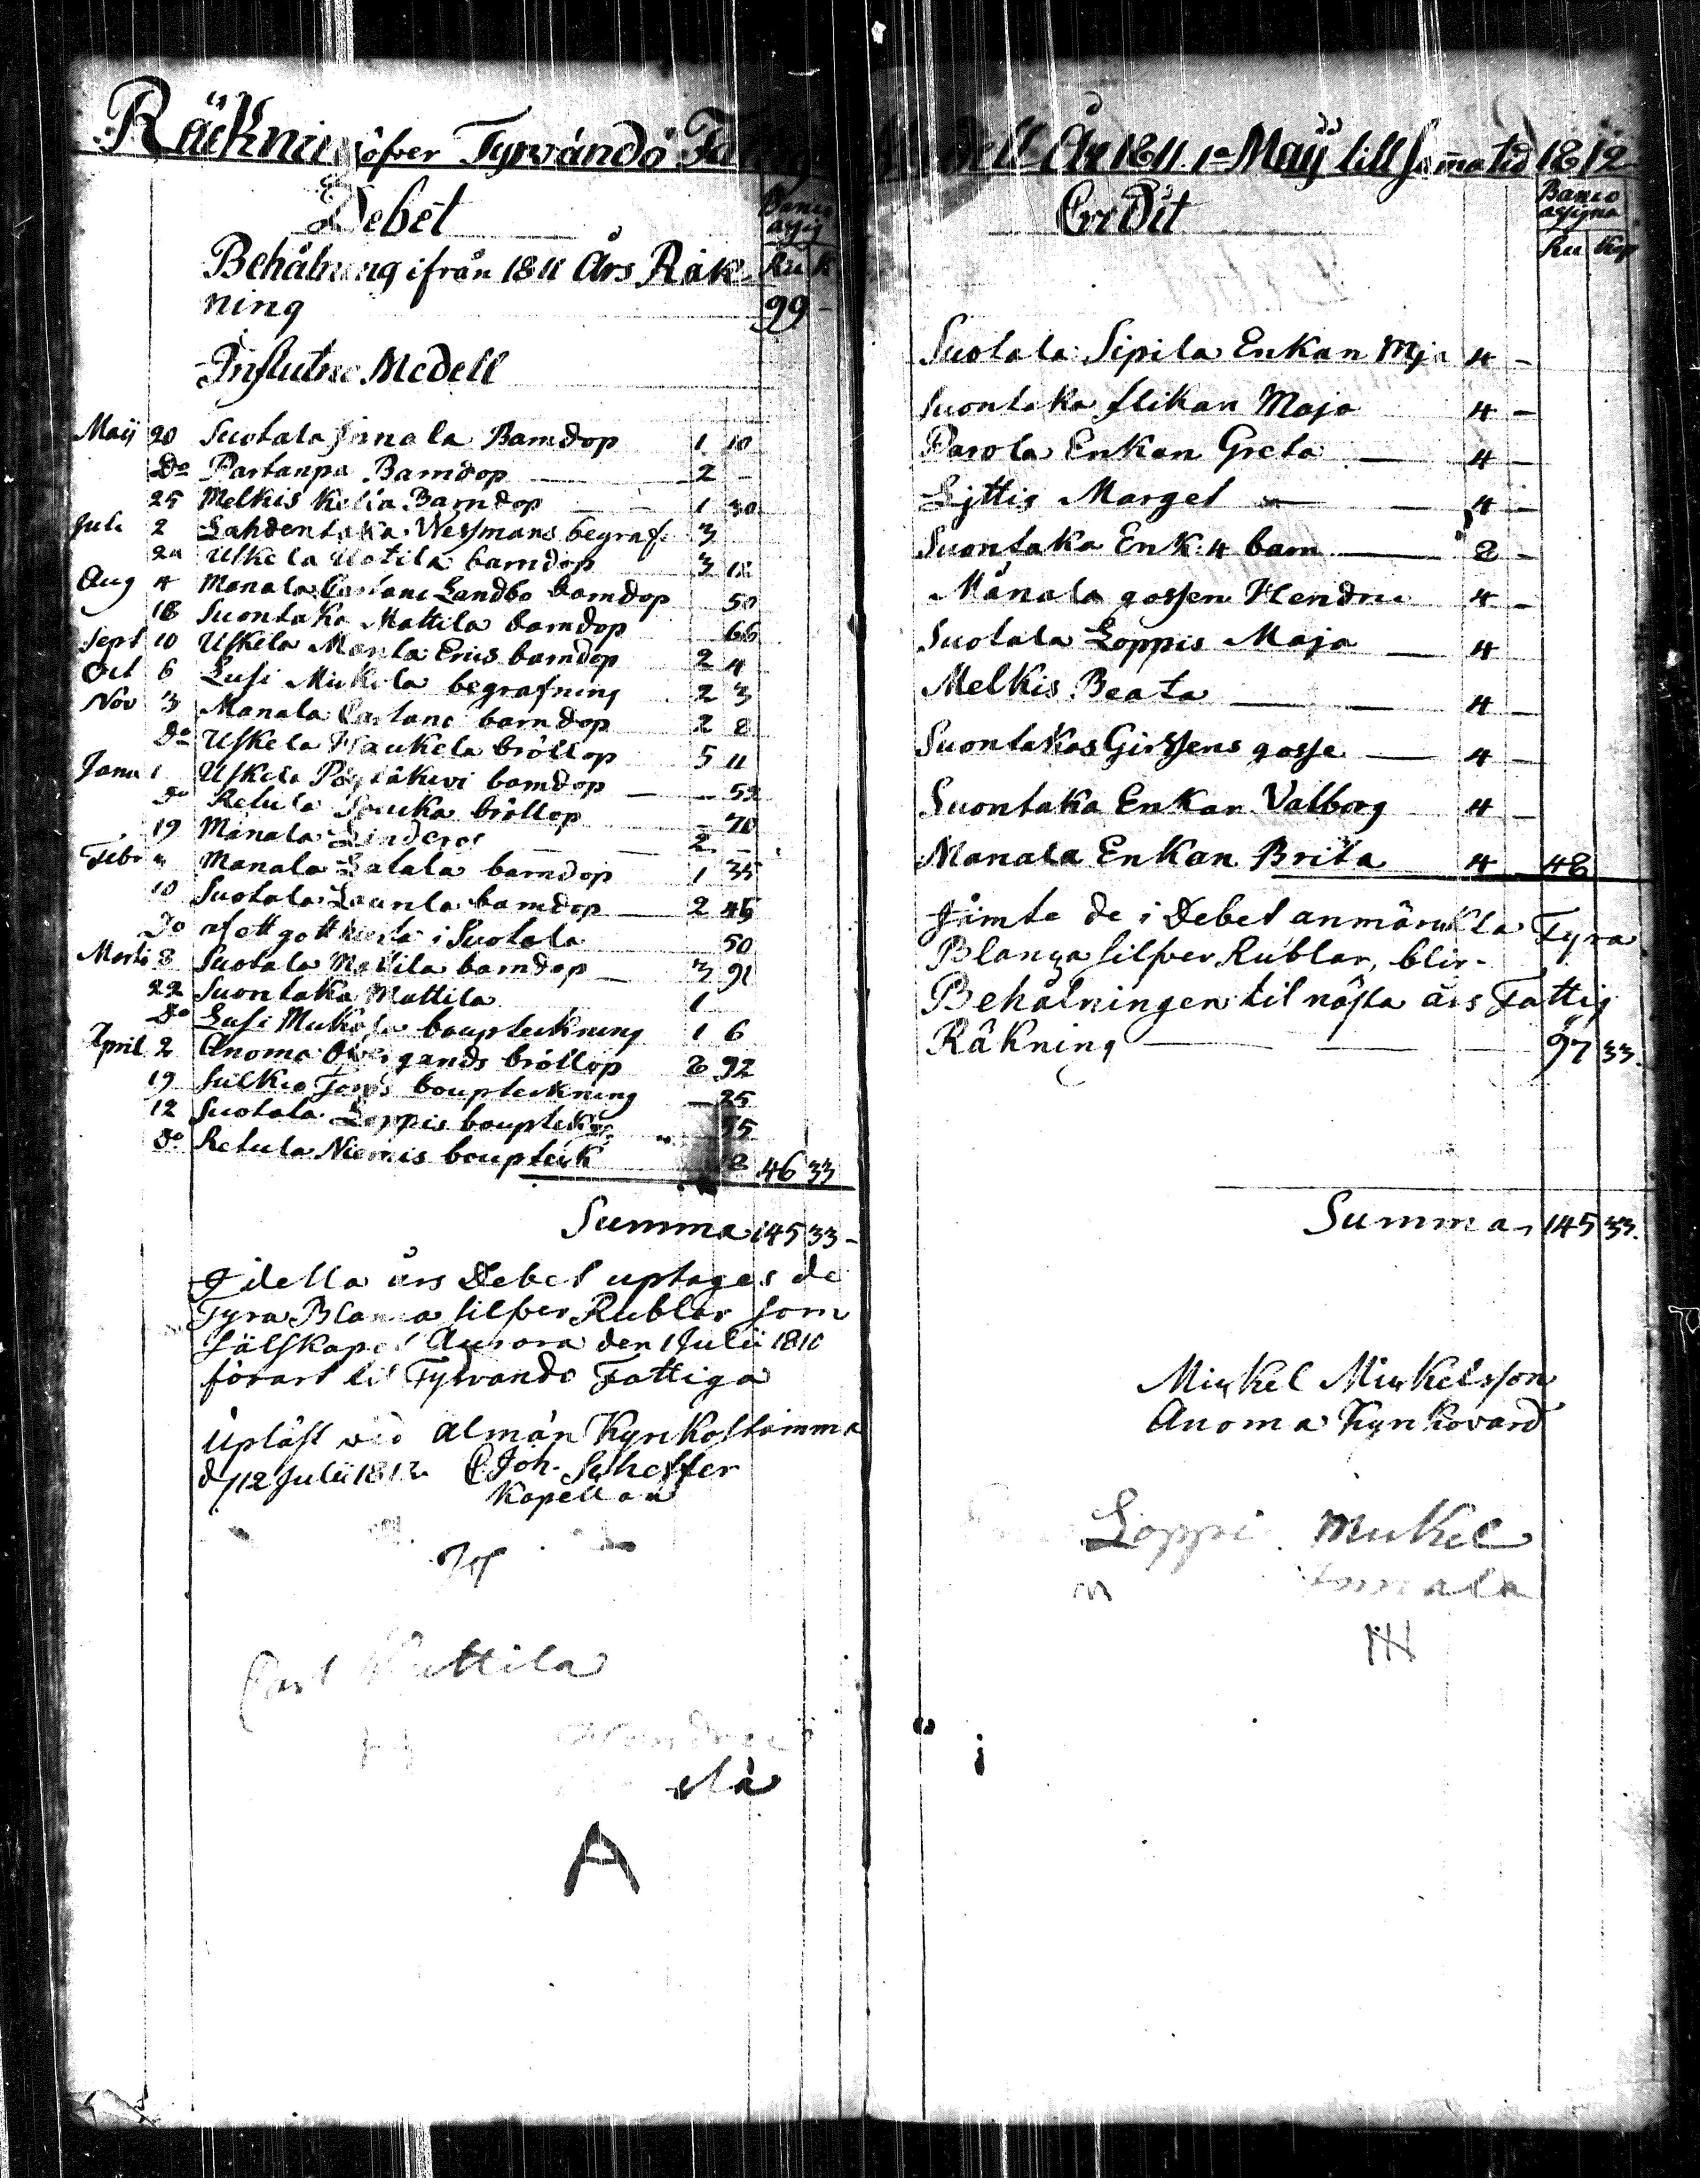 Räkning öfver Tyrvändö
Debet
Banco
assig
Behålning ifrån 1811 Års Räk- Ru K
ning 99 -
Influtne Medell
Maij 20 Suotala Jnnala Barndop 1 10
Do Partanpä Barndop 2 -
25 Melkis Kelia Barndop 1 30
Juli 2 Lahdentaka Wessmans begraf. 3
Uskela Uotila barndop 3 18
Aug 4 Monala Landbo barndop 50
18 Suontaka Mattila barndop 66
Sept 10 Uskela Erics barndop 2 4
Oct 6 Lusi Mickola begrafning 2 3
Nov 3 Manala barndop 2 8
Do Uskela Haukela bröllop 5 11
Janu 1 Uskela barndop 52
Do Retula bröllop - 70
19 Manala 2 -
Febr Manala Lalala barndop 1 35
10 Suotala barndop 2 45
Do af ett gott hierta i Suotala 50
Marti 8 Suotala Mattila barndop 3 91
22 Suontaka Mattila 1
Do Lusi Mickola boupteckning 1 6
April 2 Anoma bröllop 6 92
19 boupteckning - 25
12 Suotala Loppis bouptekn. 55
Do Retula Niemis bouptek 8 46 33
Summa 145 33 -
I detta års Debet uptages de
Fyra Blanka silfver Rublar som
Sälskapet Aurora den 1 Julii 1810
förärt til Tyrvändö Fattiga
Upläst wid Almän Kyrkostämma
d 12 Julii 1812. Joh. Scheffer
Kapellan
Carl Mattila
A
År 1811. 1a Maij till samma tid 1812
Credit
Banco
assigna
Ru Kop
Suotala Sipila Enkan Mja 4 -
Suontaka flikan Maja 4 -
Parola Enkan Greta 4 -
Lyttis Marget 4 -
Suontaka Enk. 4 barn 8 -
Månala gossen Hendric 4 -
Suotala Loppis Maja 4
Melkis Beata 4 -
Suontakas Girssens gosse 4 -
Suontaka Enkan Valborg 4 -
Manala Enkan Brita 4 - 48
Jämte de i Debet anmärckta Fyra
Blanka silfver Rublar, blir
Behålningen til nästa års Fattig
Räkning 97 33.
Summa 145 33.
Mickel Mickelsson
Anoma Kyrkovärd
Loppi Mickel
Innala